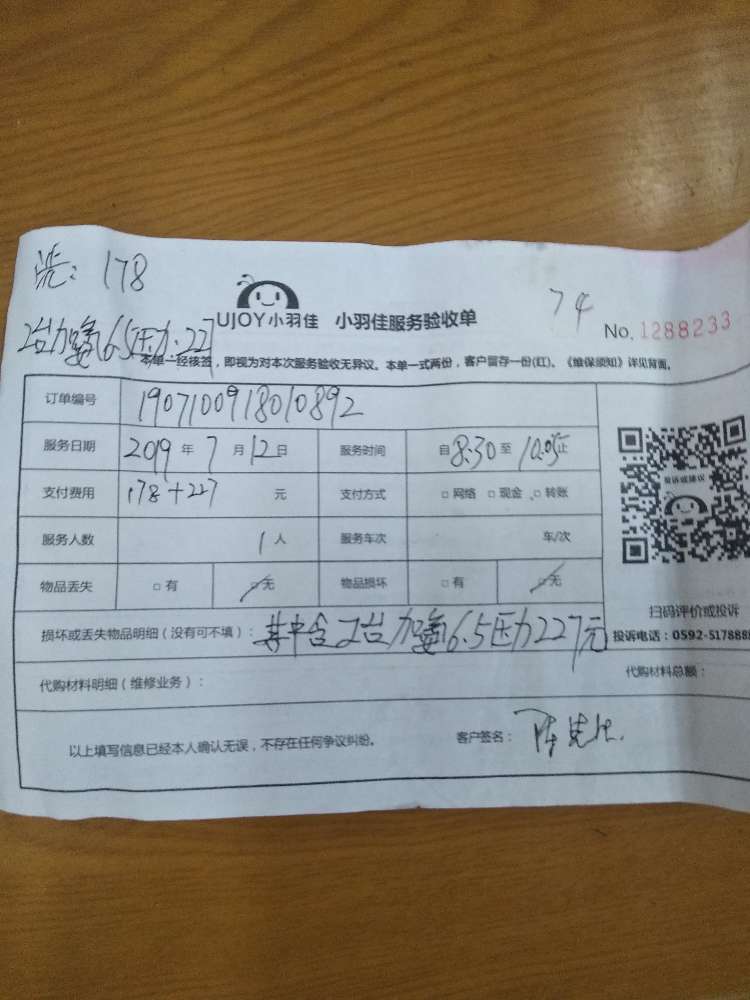 洗: 178
2台加氟6.5压力.227
UJOY小羽佳 小羽佳服务验收单
74
No. 1288233
本单一经核签，即视为对本次服务验收无异议。本单一式两份，客户留存一份(红)。《维保须知》详见背面。
订单编号 190710091801 0892
服务日期 2019 年 7 月 12 日 服务时间 自 8:30 至 10:05 止
支付费用 178+227 元 支付方式 □ 网络 □ 现金 □ 转账
服务人数 1 人 服务车次 车/次
物品丢失 □ 有 □ 无 物品损坏 □ 有 □ 无
投诉或建议
扫码评价或投诉
损坏或丢失物品明细（没有可不填）： 其中含2台加氟6.5压力227元
投诉电话：0592-517888
代购材料明细（维修业务）： 代购材料总额：
以上填写信息已经本人确认无误，不存在任何争议纠纷。 客户签名： 陈先生